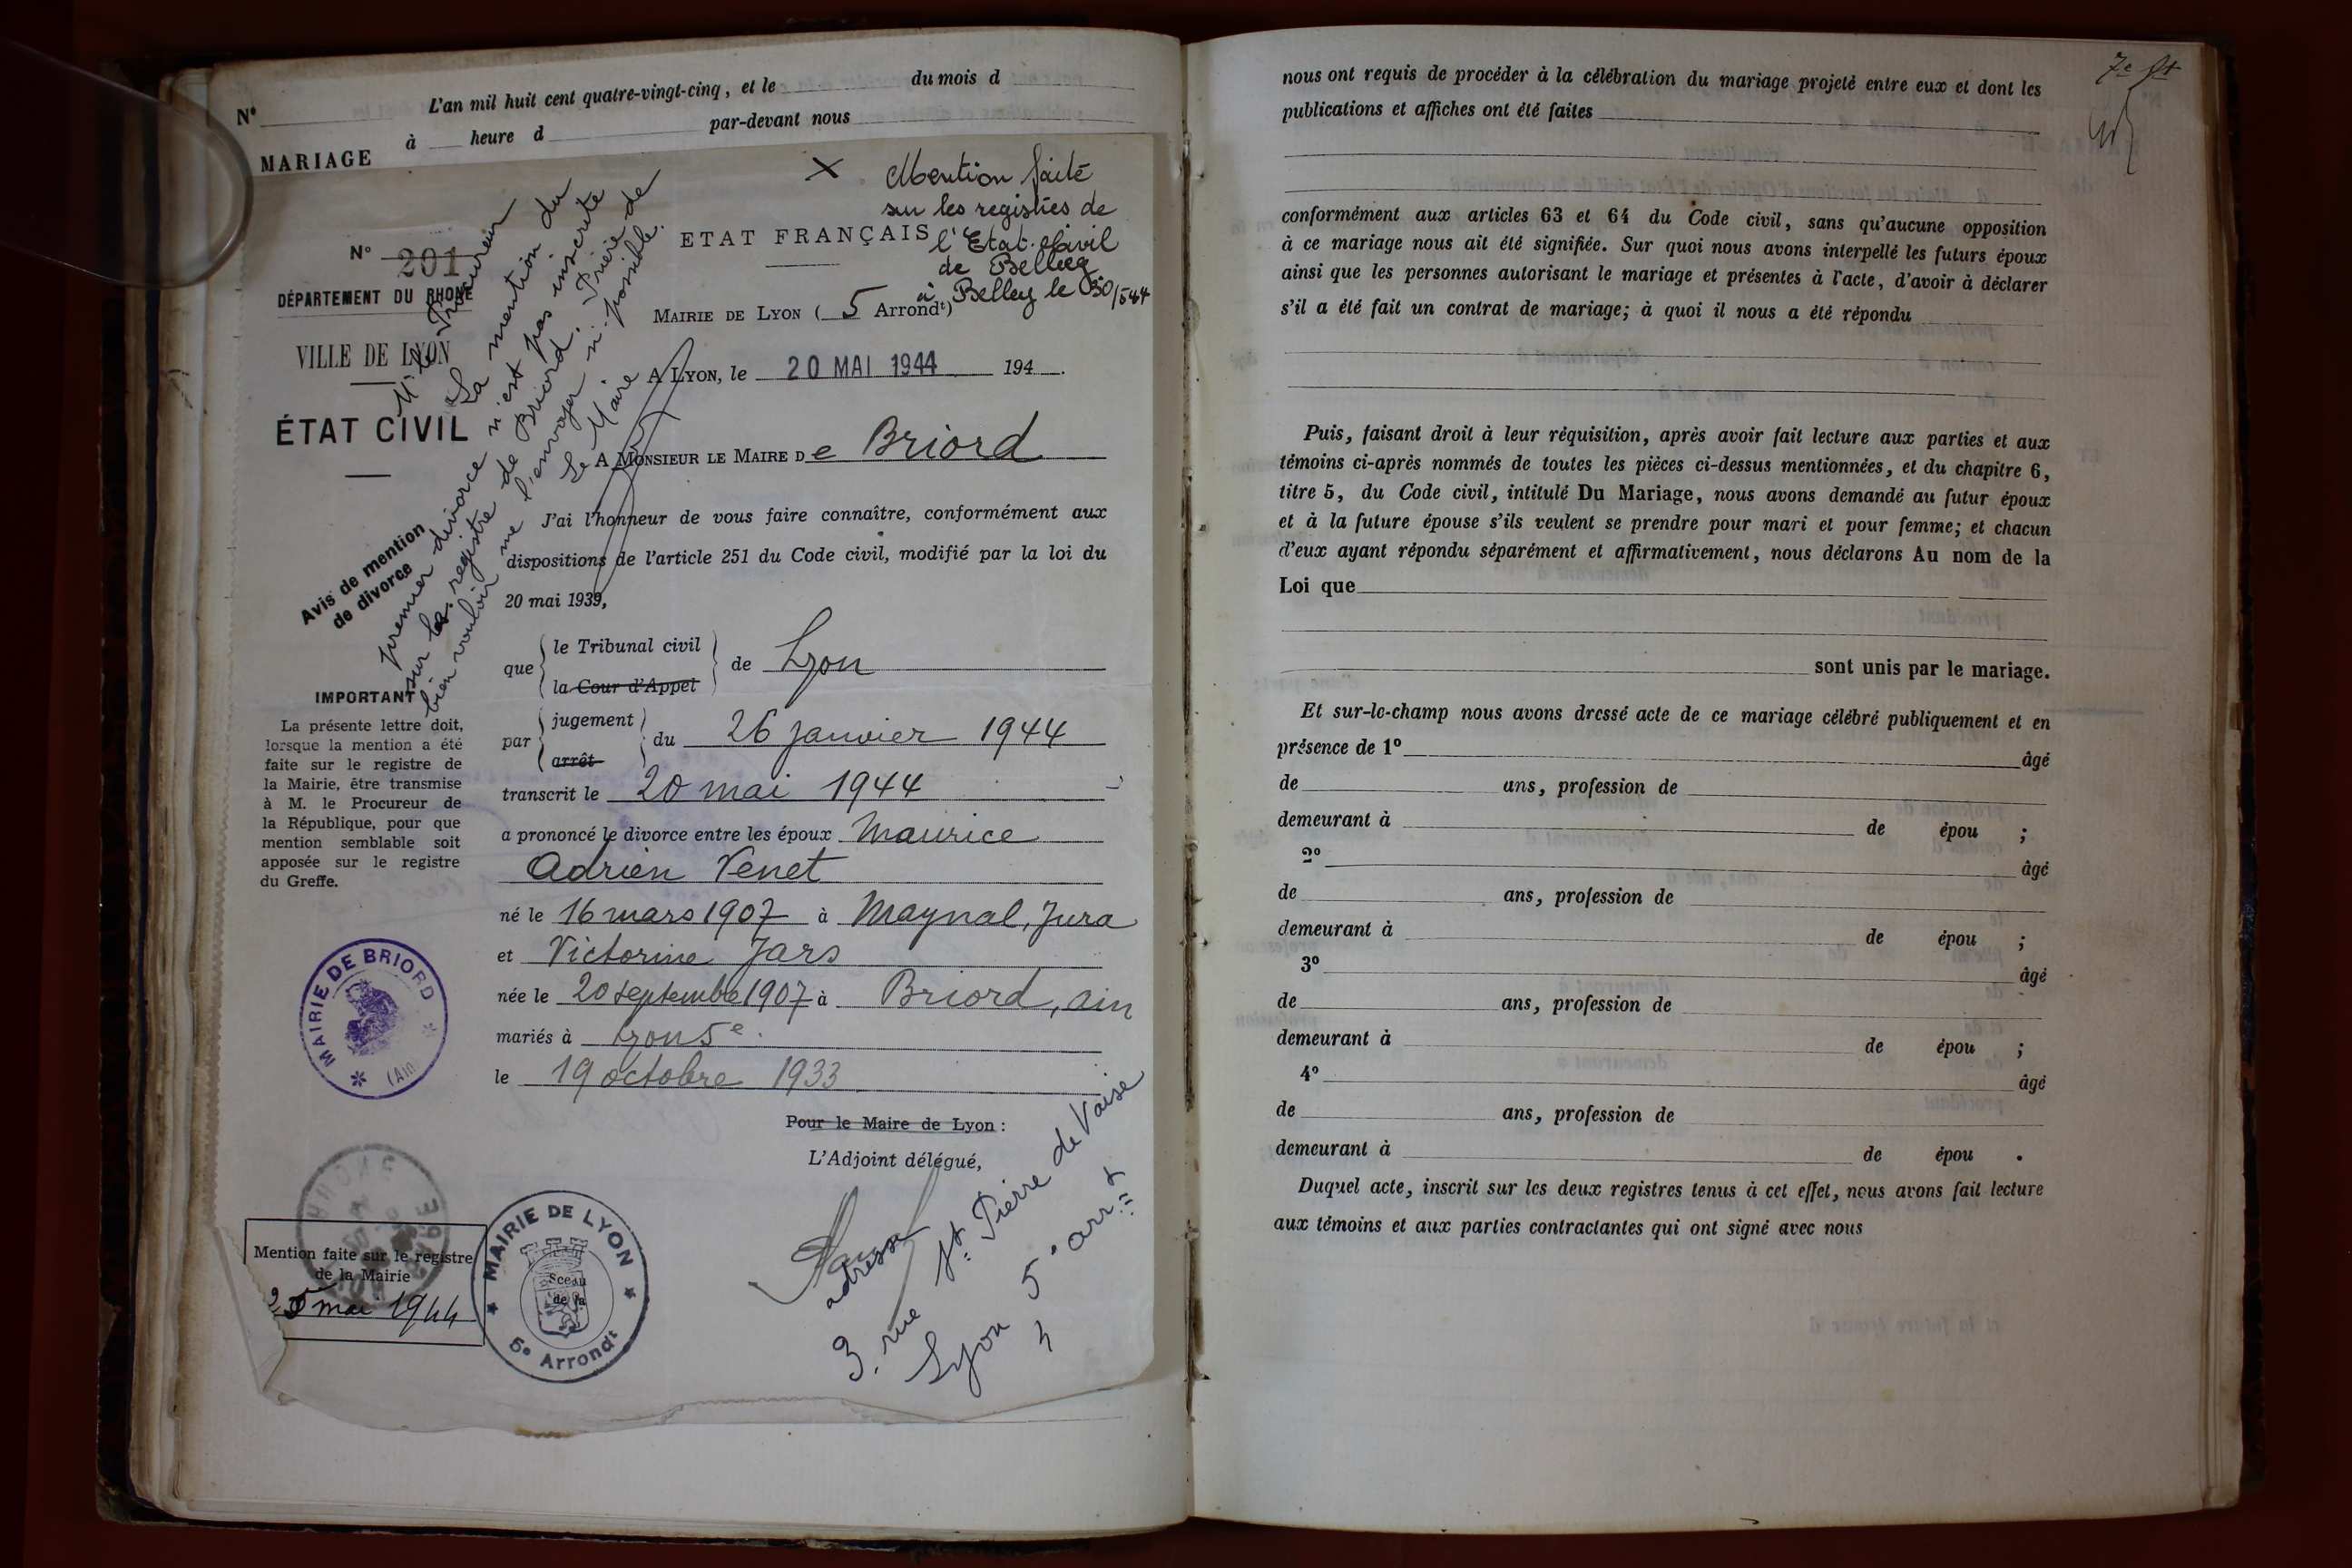 N° L'an mil huit cent quatre-vingt-cinq, et le du mois d
à heure d par-devant nous
MARIAGE
X Mention faite
sur les registres de
l'Etat-Civil
de Belley
à Belley le 30/5 44
ETAT FRANÇAIS
N° 201
DÉPARTEMENT DU RHONE
VILLE DE LYON
ÉTAT CIVIL
MAIRIE DE LYON ( 5 Arrondt)
A LYON, le 20 MAI 1944 194 .
A MONSIEUR LE MAIRE De Briord
Mr le Procureur
La mention du
premier divorce n'est pas inscrite
sur les registre de Briord. Prière de
bien vouloir me l'envoyer si possible.
Le Maire
Avis de mention
de divorce
J'ai l'honneur de vous faire connaître, conformément aux
dispositions de l'article 251 du Code civil, modifié par la loi du
20 mai 1939,
que le Tribunal civil
la Cour d'Appel
de Lyon
par jugement
arrêt
du 26 janvier 1944
transcrit le 20 mai 1944
a prononcé le divorce entre les époux Maurice
Adrien Venet
né le 16 mars 1907 à Maynal, Jura
et Victorine Jars
née le 20 septembre 1907 à Briord, ain
mariés à Lyon 5e.
le 19 octobre 1933
Pour le Maire de Lyon :
L'Adjoint délégué,
adresse
3. rue St Pierre de Vaise
Lyon 5e arrt
IMPORTANT
La présente lettre doit,
lorsque la mention a été
faite sur le registre de
la Mairie, être transmise
à M. le Procureur de
la République, pour que
mention semblable soit
apposée sur le registre
du Greffe.
MAIRIE DE BRIORD
(Ain
Mention faite sur le registre
de la Mairie
25 mai 1944
MAIRIE DE LYON
Sceau
de la
5e Arrondt
7e ft
nous ont requis de procéder à la célébration du mariage projeté entre eux et dont les
publications et affiches ont été faites
conformément aux articles 63 et 64 du Code civil, sans qu'aucune opposition
à ce mariage nous ait été signifiée. Sur quoi nous avons interpellé les futurs époux
ainsi que les personnes autorisant le mariage et présentes à l'acte, d'avoir à déclarer
s'il a été fait un contrat de mariage; à quoi il nous a été répondu
Puis, faisant droit à leur réquisition, après avoir fait lecture aux parties et aux
témoins ci-après nommés de toutes les pièces ci-dessus mentionnées, et du chapitre 6,
titre 5, du Code civil, intitulé Du Mariage, nous avons demandé au futur époux
et à la future épouse s'ils veulent se prendre pour mari et pour femme; et chacun
d'eux ayant répondu séparément et affirmativement, nous déclarons Au nom de la
Loi que
sont unis par le mariage.
Et sur-le-champ nous avons dressé acte de ce mariage célébré publiquement et en
présence de 1° âgé
de ans, profession de
demeurant à de épou ;
2° âgé
de ans, profession de
demeurant à de épou ;
3° âgé
de ans, profession de
demeurant à de épou ;
4° âgé
de ans, profession de
demeurant à de épou .
Duquel acte, inscrit sur les deux registres tenus à cet effet, nous avons fait lecture
aux témoins et aux parties contractantes qui ont signé avec nous